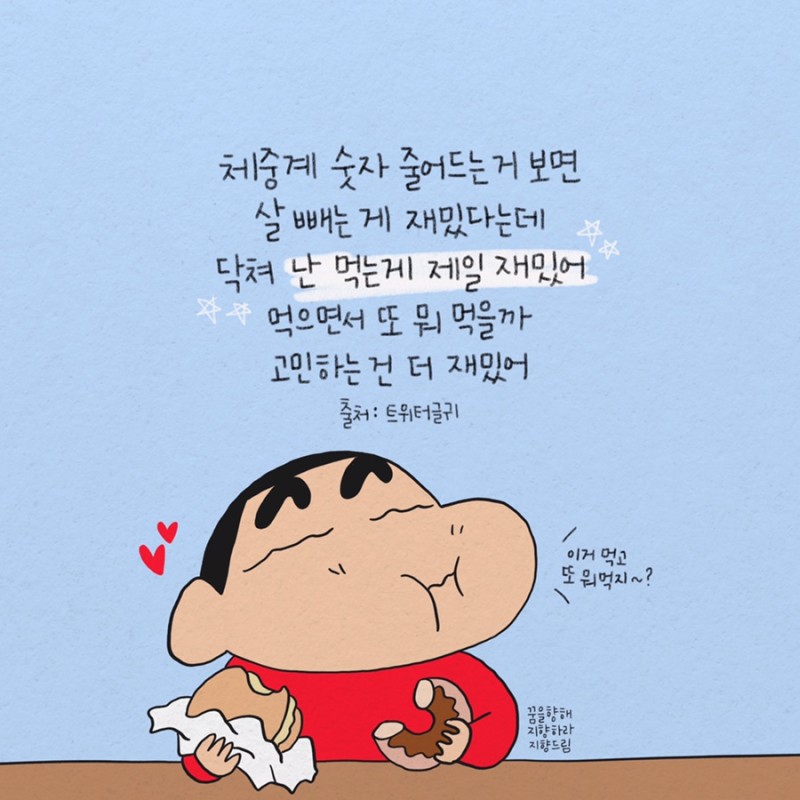 체중계 숫자 줄어드는거 보면
살 빼는게 재밌다는데
닥쳐 난 먹는게 제일 재밌어
먹으면서 또 뭐 먹을까
고민하는건 더 재밌어
출처: 트위터글귀
이거 먹고
또 뭐먹지~?
꿈을향해
지향하라
지향드림